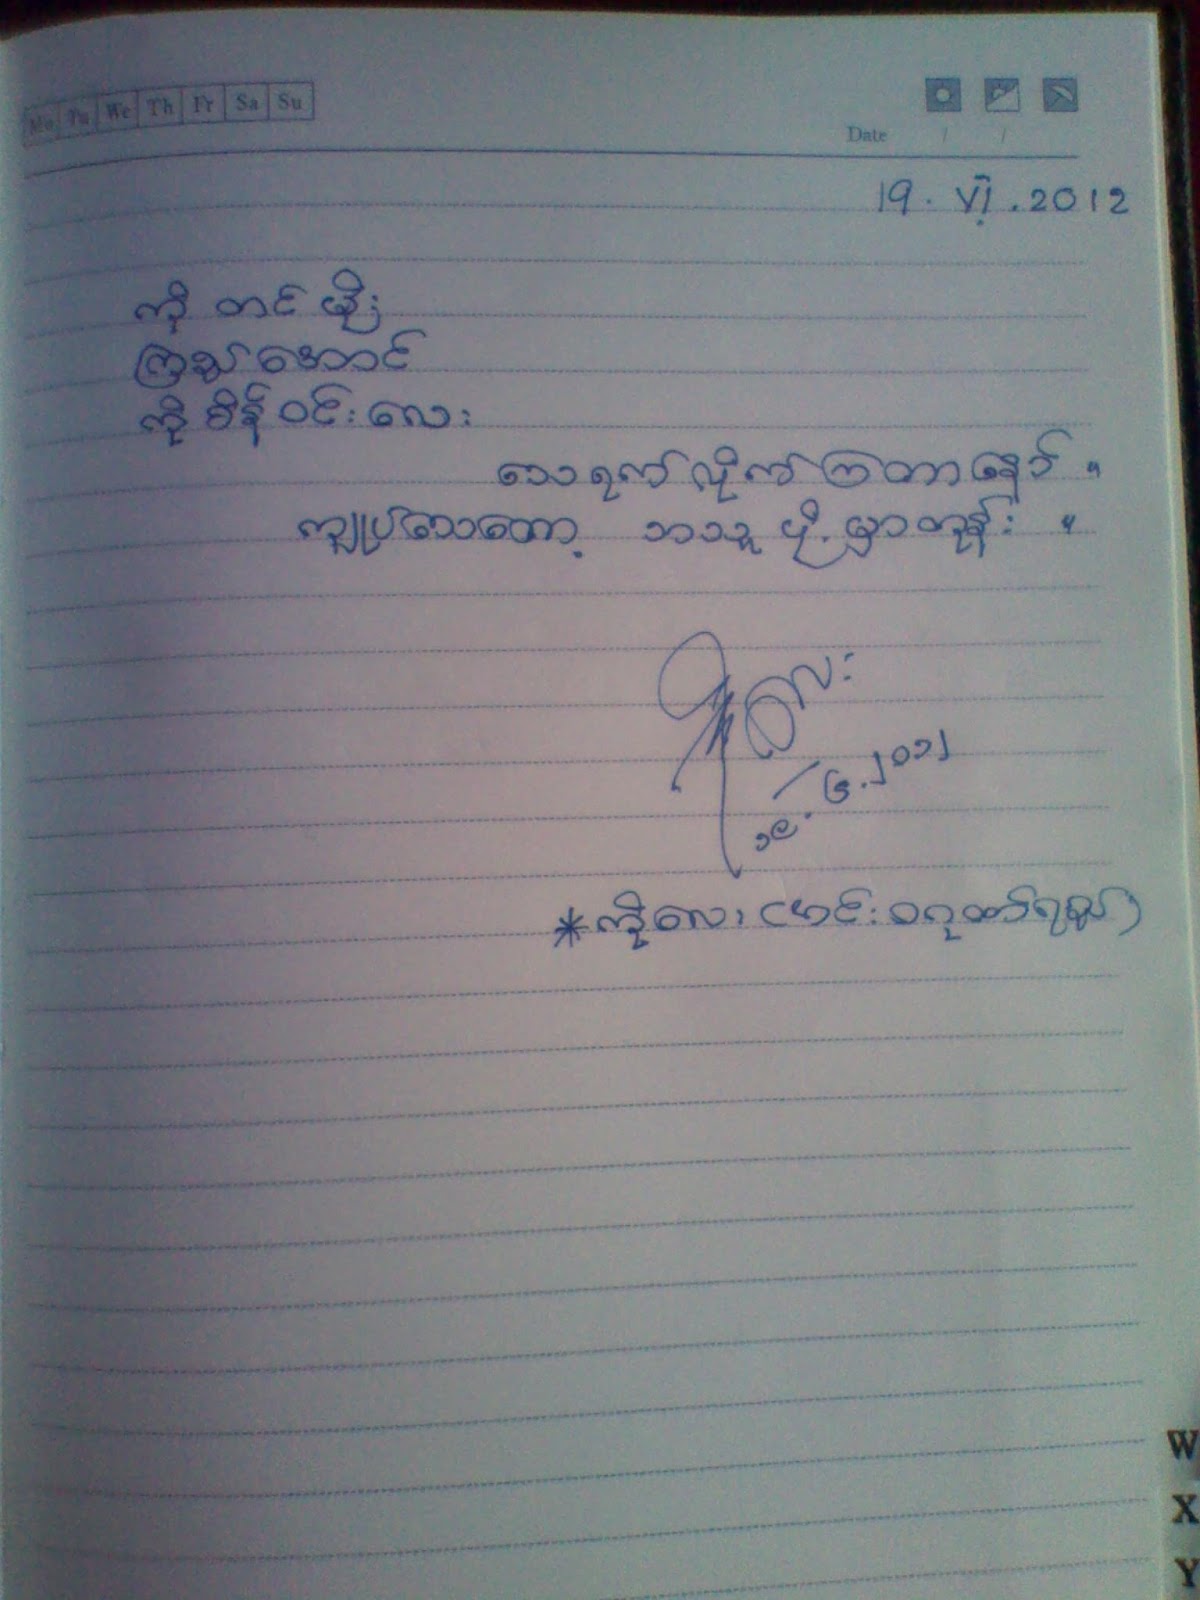 Mo Tu We Th Fr Sa Su
Date / /
19. VI. 2012
ကို တင် မိုး
ကြည်အောင်
ကို စိန် ဝင်း လေး
သေ ရက် လိုက် ကြ တာ နော် ။
ကျုပ် သေတော့ ဘယသူ ပို့ မှာ တုန်း ။
လေး
၁၉.၆.၂၀၁၂
* ကိုလေး (အင်းဝဂုဏ်ရည်)
W
X
Y